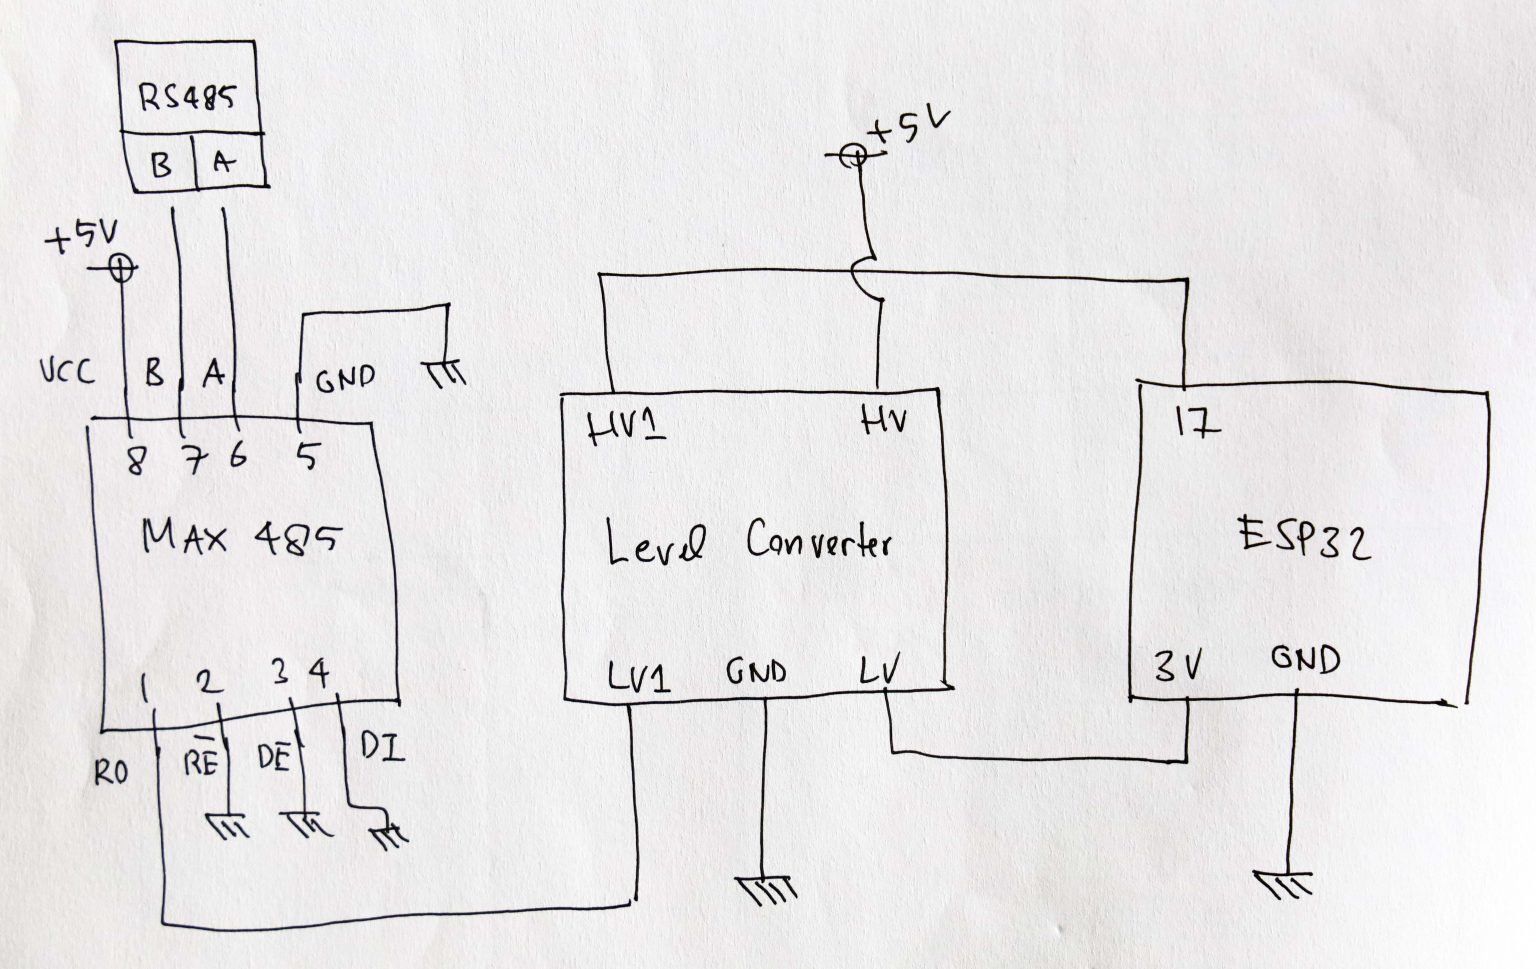 RS485
B A
+5V
VCC B A GND
8 7 6 5
MAX 485
1 2 3 4
RO R̅E̅ DE̅ DI
+5V
HV1 HV
Level Converter
LV1 GND LV
17
ESP32
3V GND